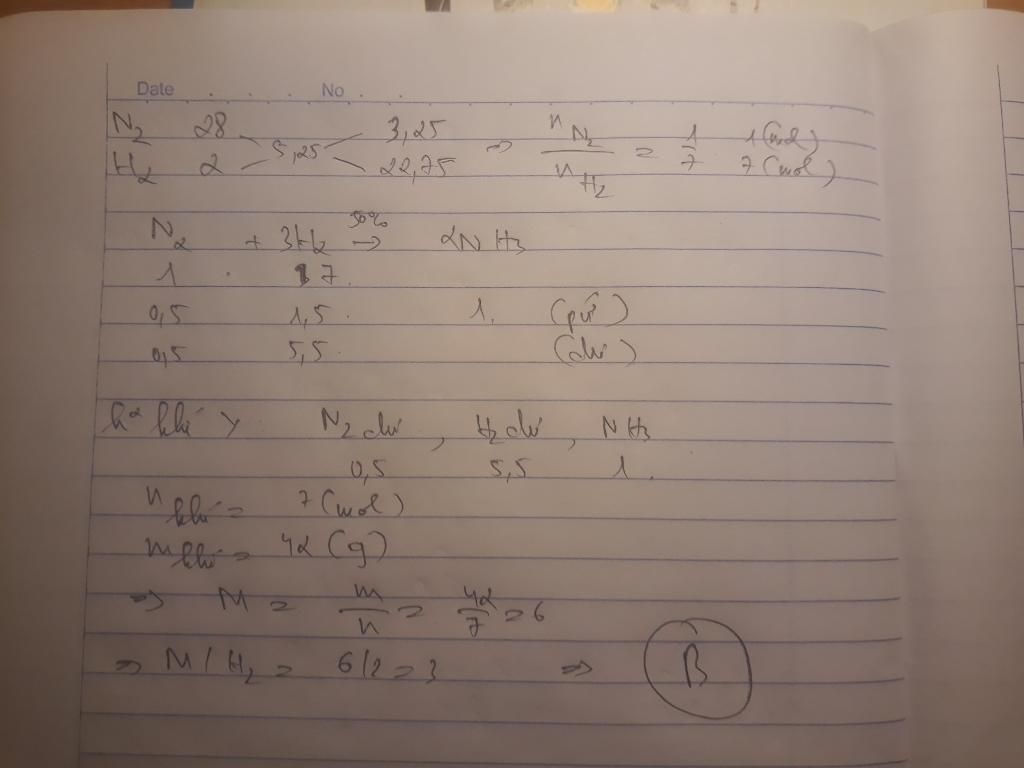 Date No
N2 28 3,25 nN2 1 1(mol)
5,25 => =
H2 2 22,75 nH2 7 7(mol)
50%
N2 + 3H2 -> 2NH3
1 7
0,5 1,5 1 (pứ)
0,5 5,5 (dư)
h² khí Y N2 dư, H2 dư, NH3
0,5 5,5 1
n khí = 7 (mol)
m khí = 42 (g)
=> M = m/n = 42/7 = 6
=> M/H2 = 6/2 = 3 => B